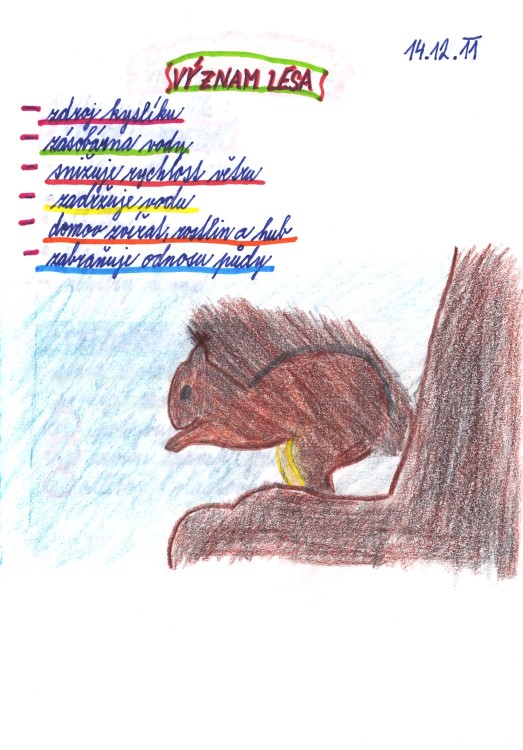 14.12.11
VÝZNAM LESA
- zdroj kyslíku
- zásobárna vody
- snižuje rychlost větru
- zadržuje vodu
- domov zvířat, rostlin a hub
- zabraňuje odnosu půdy